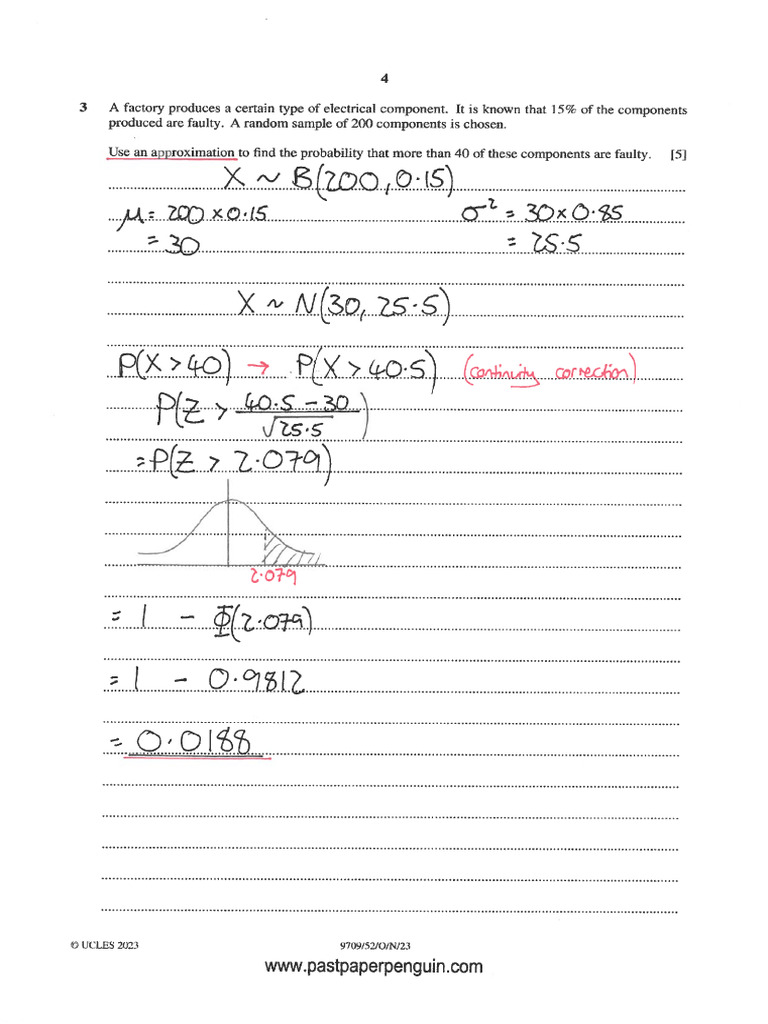 4
3 A factory produces a certain type of electrical component. It is known that 15% of the components
produced are faulty. A random sample of 200 components is chosen.
Use an approximation to find the probability that more than 40 of these components are faulty. [5]
X ~ B(200, 0.15)
μ = 200 × 0.15 σ² = 30 × 0.85
= 30 = 25.5
X ~ N(30, 25.5)
P(X > 40) → P(X > 40.5) (continuity correction)
P(Z > (40.5 - 30)/√25.5)
= P(Z > 2.079)
2.079
= 1 - Φ(2.079)
= 1 - 0.9812
= 0.0188
© UCLES 2023 9709/52/O/N/23
www.pastpaperpenguin.com